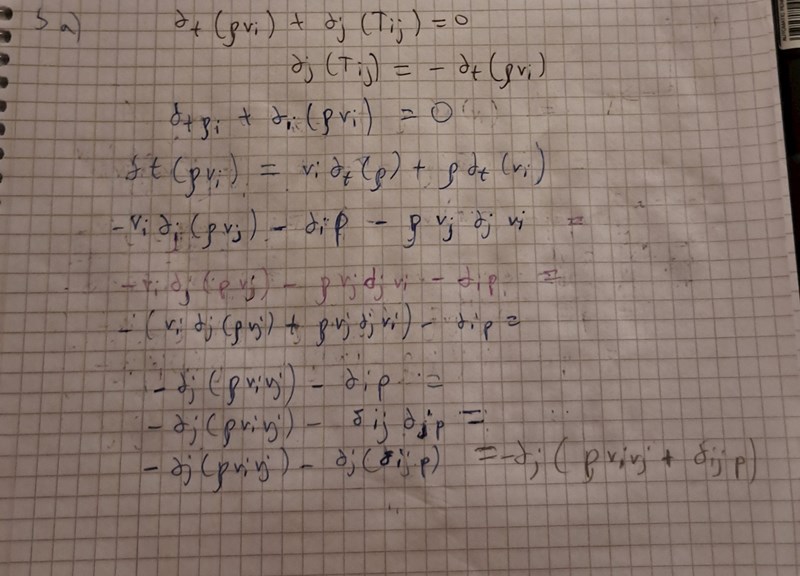 5 a) ∂t(ρvi) + ∂j(Tij) = 0
∂j(Tij) = - ∂t(ρvi)
∂tρi + ∂i(ρvi) = 0
∂t(ρvi) = vi ∂t(ρ) + ρ ∂t(vi)
-vi ∂j(ρvj) - ∂ip - ρ vj ∂j vi =
-vi ∂j(ρvj) - ρvj∂jvi - ∂ip =
-(vi ∂j(ρvj) + ρvj∂jvi) - ∂ip =
-∂j(ρvivj) - ∂ip =
-∂j(ρvivj) - δij ∂jp =
-∂j(ρvivj) - ∂j(δijp) = -∂j(ρvivj + δijp)